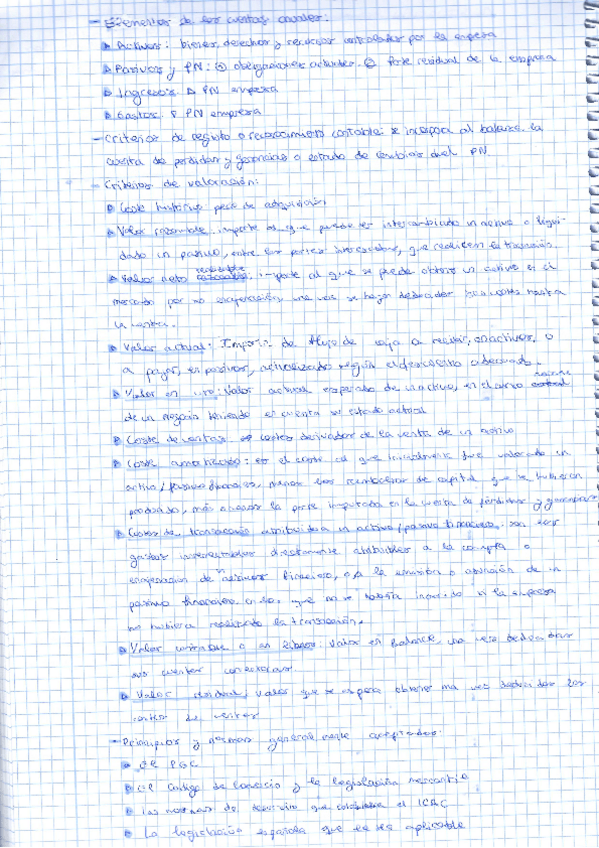 - Elementos de las cuentas anuales:
▷ Activos: bienes, derechos y recursos controlados por la empresa
▷ Pasivos y PN: obligaciones actuales. parte residual de la empresa
▷ Ingresos: Δ PN empresa
▷ Gastos: PN empresa
- Criterios de registro o reconocimiento contable: se incorpora al balance, la
cuenta de pérdidas y ganancias o estado de cambios del PN
- Criterios de valoración:
▷ Coste histórico: de adquisición
▷ Valor razonable: importe al que puede ser intercambiado un activo o liqui-
dado un pasivo, entre las partes que realicen la transacción
▷ Valor neto importe al que se puede obtener un activo en el
mercado por su enajenación, una vez se hayan deducidos los costes hasta
la venta.
▷ Valor actual: Importe de flujo de caja a recibir, en activos, o
a pagar, en pasivos, actualizados según el descuento adecuado.
▷ Valor en uso: Valor actual esperado de un activo, en el curso
de un negocio teniendo en cuenta su estado actual
▷ Coste de ventas: costes derivados de la venta de un activo
▷ Coste amortizado: es el coste al que inicialmente fue valorado un
activo/pasivo financiero, menos los reembolsos de capital que se hubieran
producido, más o menos la parte imputada en la cuenta de pérdidas y ganancias
▷ Costes de transacción atribuidos a un activo/pasivo financiero: son los
gastos incrementales directamente atribuibles a la compra o
enajenación de activos financiero, o a la emisión o de un
pasivo financiero en los que no se habría incurrido si la empresa
no hubiera realizado la transacción.
▷ Valor contable o en libros: Valor en balance, una vez deducidas
sus cuentas
▷ Valor residual: valor que se espera obtener una vez deducidos los
costes de ventas
- Principios y normas generalmente aceptados:
▷ El PGC
▷ El código de Comercio y la legislación mercantil
▷ Las normas de desarrollo que establece el ICAC
▷ La legislación española que sea aplicable